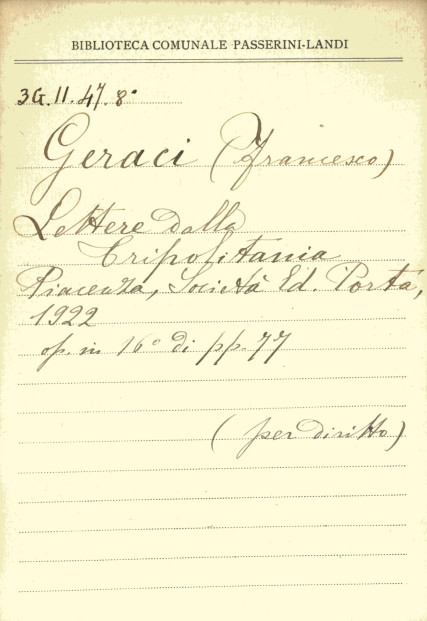 BIBLIOTECA COMUNALE PASSERINI-LANDI
3G.II.47.8°
Geraci (Francesco)
Lettere dalla
Tripolitania
Piacenza, Società Ed. Porta,
1922
op. in 16° di pp. 77
(per diritto)